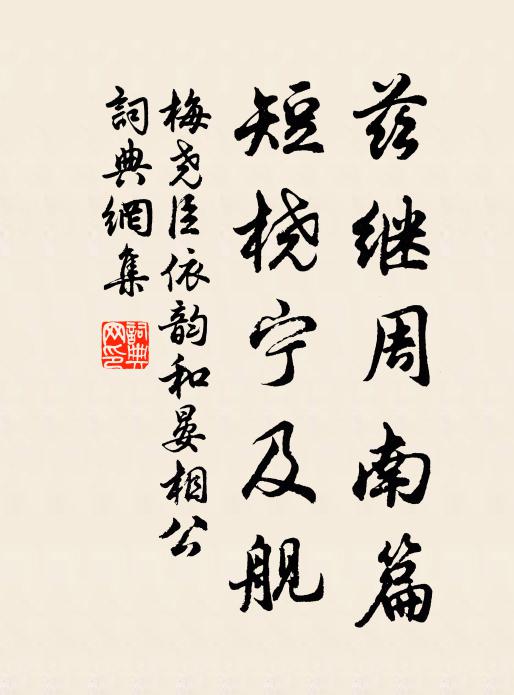 兹继周南篇
短桡宁及舰
梅尧臣依韵和晏相公
詞典網集
詞典网印